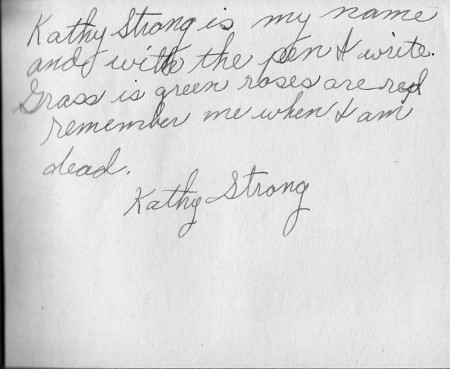 Kathy Strong is my name
and with the pen I write.
Grass is green roses are red
remember me when I am
dead.
Kathy Strong